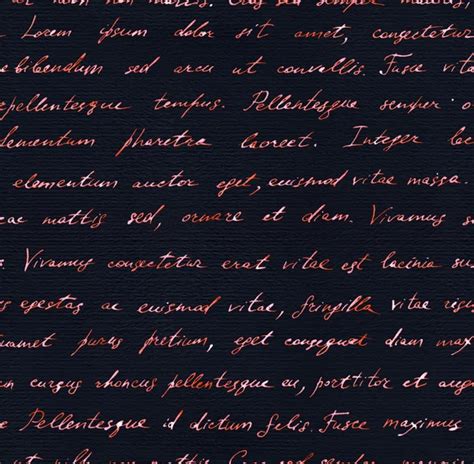 non mattis mauris. Cras sed semper mauris,
Lorem ipsum dolor sit amet, consectetur
bibendum sed arcu ut convallis. Fusce vita
epellentesque tempus. Pellentesque semper o
lementum pharetra laoreet. Integer lac
elementum auctor eget, euismod vitae massa.
cac mattis sed, ornare et diam. Vivamus s
s. Vivamus consectetur erat vitae est lacinia su
us egestas ac euismod vitae, fringilla vitae risu
amet purus pretium, eget consequat diam max
in cursus rhoncus pellentesque eu, porttitor et aug
Pellentesque id dictum felis. Fusce maximus